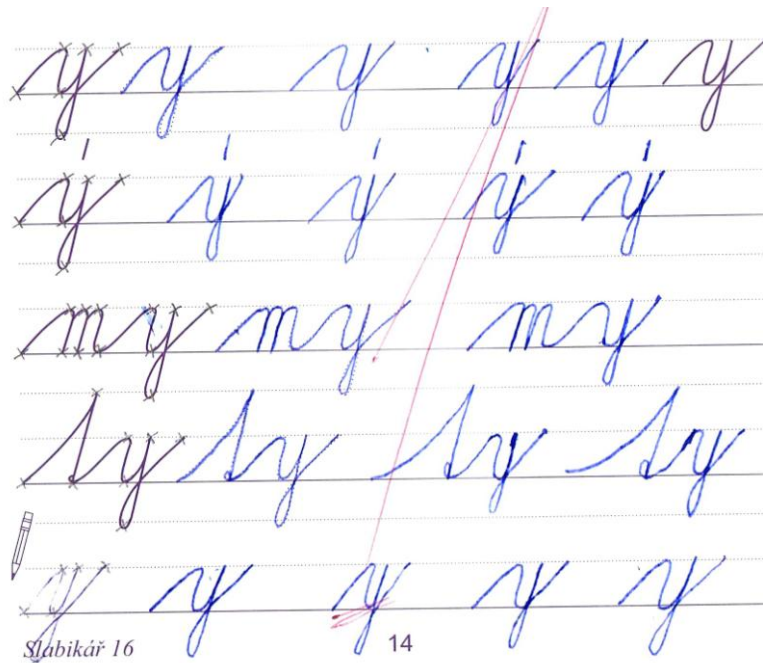 y y y y y y
ý ý ý ý ý
my my my
sy sy sy sy
y y y y y
Slabikář 16 14